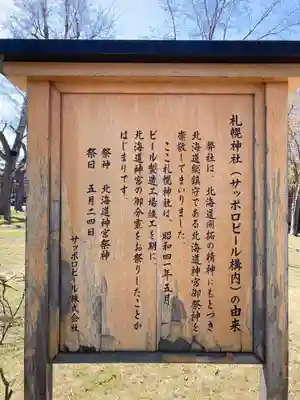 札幌神社(サッポロビール構内)の由来
弊社は、北海道開拓の精神にもとづき
北海道総鎮守である北海道神宮御祭神を
崇敬してまいりました。
ここ札幌神社は、昭和四一年五月
ビール製造工場竣工を期に、
北海道神宮の御分霊をお祭りしたことが
はじまりです。
祭神 北海道神宮祭神
祭日 五月二四日
サッポロビール株式会社